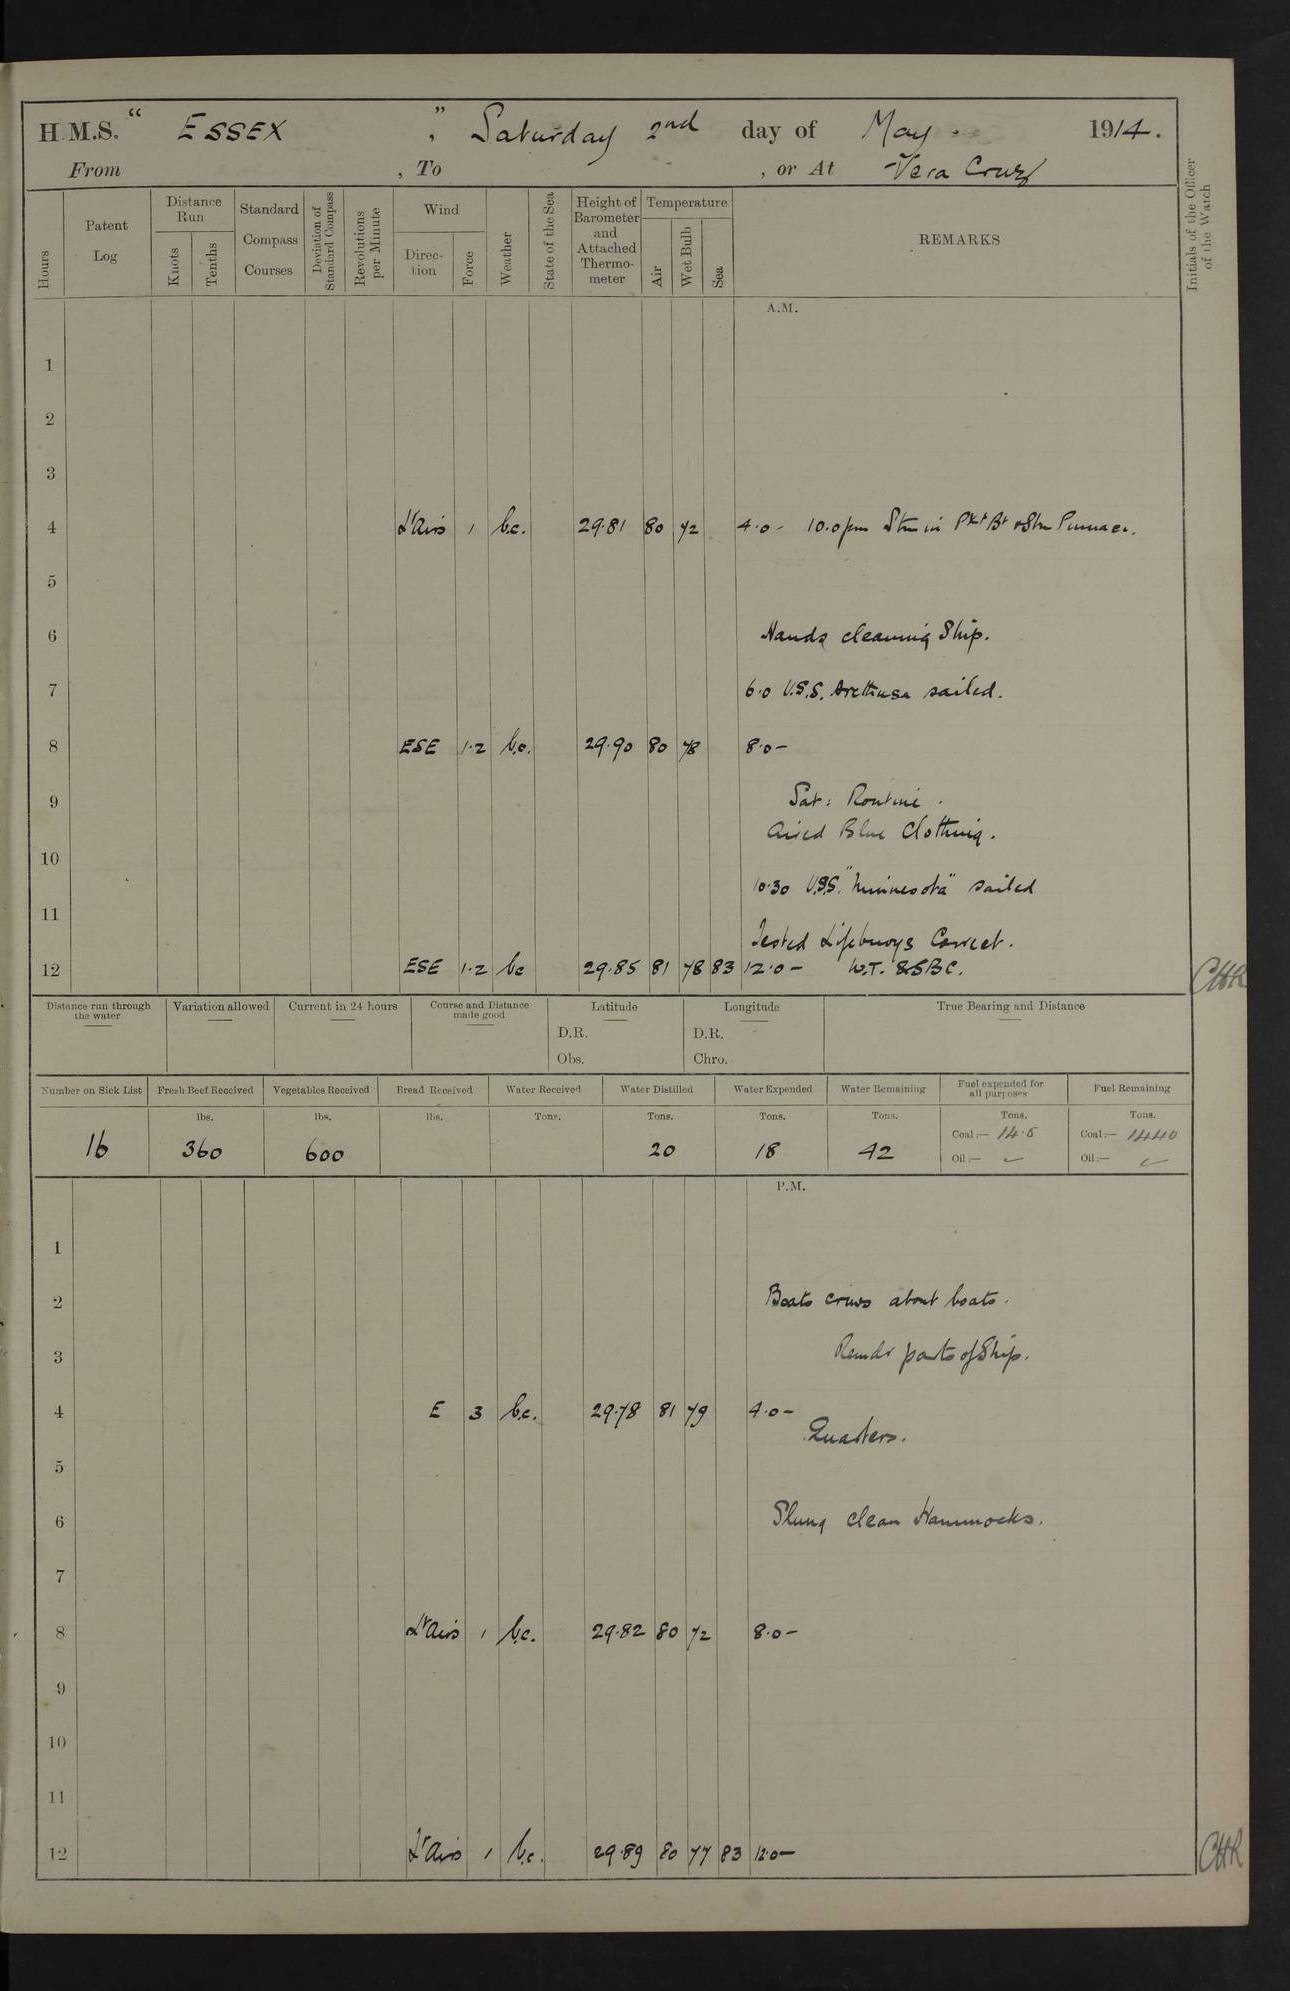 H.M.S. " ESSEX ", Saturday 2nd day of May. 1914.
From , To , or At Vera Cruz
Hours
Patent Log
Distance Run
Knots
Tenths
Standard Compass Courses
Deviation of Standard Compass
Revolutions per Minute
Wind
Direction
Force
Weather
State of the Sea
Height of Barometer and Attached Thermometer
Temperature
Air
Wet Bulb
Sea
REMARKS
Initials of the Officer of the Watch
A.M.
1
2
3
4 Lt Airs 1 b.c. 29.81 80 72 4.0 - 10.0pm Stm in Pkt Bt & Stm Pinnace.
5
6 Hands cleaning Ship.
7 6.0 U.S.S. Arethusa sailed.
8 ESE 1.2 b.c. 29.90 80 78 8.0 -
9 Sat: Routine.
Aired Blue Clothing.
10
10.30 U.S.S. "Minnesota" sailed
11
Tested Lifebuoys Correct.
12 ESE 1.2 bc 29.85 81 78 83 12.0 - W.T. & SBC. CHR
Distance run through the water
Variation allowed
Current in 24 hours
Course and Distance made good
Latitude
D.R.
Obs.
Longitude
D.R.
Chro.
True Bearing and Distance
Number on Sick List Fresh Beef Received Vegetables Received Bread Received Water Received Water Distilled Water Expended Water Remaining Fuel expended for all purposes Fuel Remaining
lbs. lbs. lbs. Tons. Tons. Tons. Tons. Tons. Tons.
16 360 600 20 18 42 Coal:— 14.5 Coal:— 1440
Oil:— Oil:—
P.M.
1
2 Boats crews about boats.
3 Remdr parts of Ship.
4 E 3 b.c. 29.78 81 79 4.0 -
Quarters.
5
6 Slung clean Hammocks.
7
8 Lt Airs 1 b.c. 29.82 80 72 8.0 -
9
10
11
12 Lt Airs 1 b.c. 29.89 80 77 83 12.0 - CHR